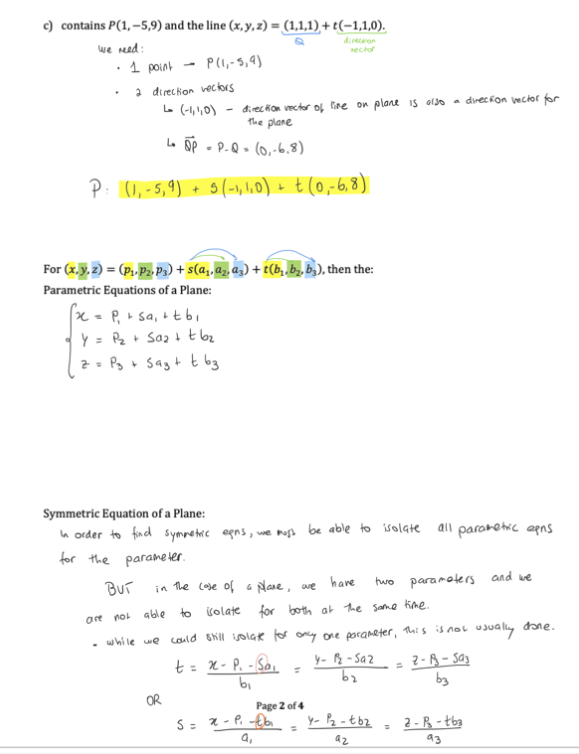 c) contains P(1, −5,9) and the line (x, y, z) = (1,1,1) + t(−1,1,0).
Q direction vector
we need:
• 1 point → P(1,-5,9)
• 2 direction vectors
↳ (-1,1,0) - direction vector of line on plane is also a direction vector for
the plane
↳ QP = P-Q = (0,-6,8)
P: (1,-5,9) + s(-1,1,0) + t(0,-6,8)
For (x, y, z) = (p₁, p₂, p₃) + s(a₁, a₂, a₃) + t(b₁, b₂, b₃), then the:
Parametric Equations of a Plane:
x = P₁ + sa₁ + tb₁
y = P₂ + sa₂ + tb₂
z = P₃ + sa₃ + tb₃
Symmetric Equation of a Plane:
In order to find symmetric eqns, we must be able to isolate all parametric eqns
for the parameter.
BUT in the case of a plane, we have two parameters and we
are not able to isolate for both at the same time.
• while we could still isolate for only one parameter, this is not usually done.
t = x - P₁ - sa₁ / b₁ = y - P₂ - sa₂ / b₂ = z - P₃ - sa₃ / b₃
OR
Page 2 of 4
s = x - P₁ - tb₁ / a₁ = y - P₂ - tb₂ / a₂ = z - P₃ - tb₃ / a₃